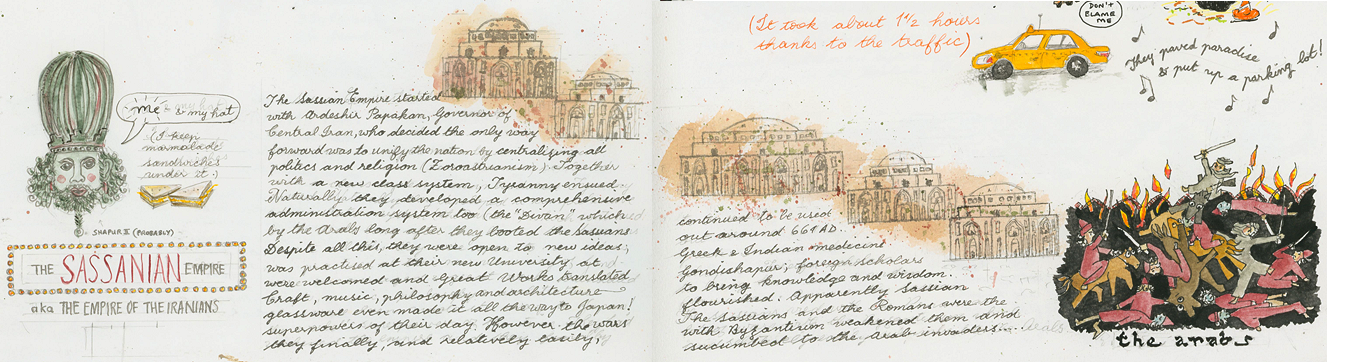 me & my hat
(I keep
marmalade
sandwiches
under it.)
SHAPUR II (PROBABLY)
THE SASSANIAN EMPIRE
aka THE EMPIRE OF THE IRANIANS
The Sassian Empire started
with Ardeshir Papakan, Governor of
Central Iran, who decided the only way
forward was to unify the nation by centralising all
politics and religion (Zoroastrianism). Together
with a new class system, Tyranny ensued.
Naturally they developed a comprehensive
administration system too (the "Divan" which
by the Arabs long after they booted the Sassians
Despite all this, they were open to new ideas;
was practised at their new University at
were welcomed and Great Works translated
Craft, music, philosophy and architecture
glassware even made it all the way to Japan!
superpowers of their day. However the wars
they finally, and relatively easily,
(It took about 1½ hours
thanks to the traffic)
DON'T
BLAME
ME
They paved paradise
& put up a parking lot!
continued to be used
out around 661 AD.
Greek & Indian medicine
Gondishapur; foreign scholars
to bring knowledge and wisdom.
flourished. Apparently Sassian
The Sassians and the Romans were the
with Byzantium weakened them and
sucumbed to the Arab invaders.
the arabs